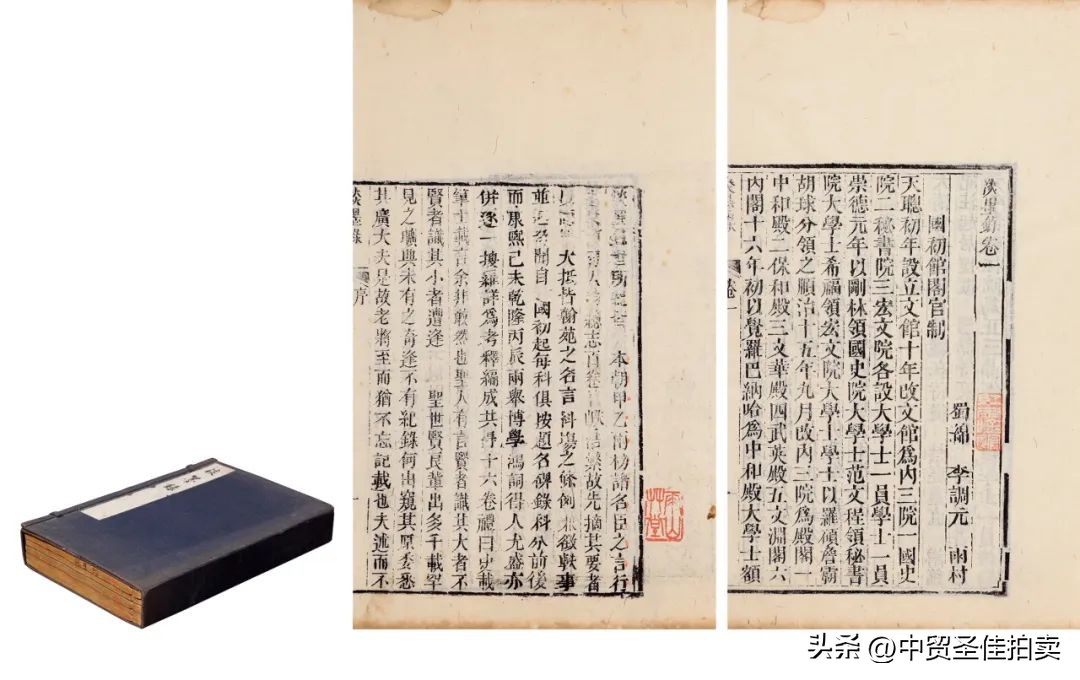 淡墨錄
本朝甲乙兩榜諸名臣之言行
繁故先摘其要者
大抵皆翰苑之名言科塲之餘例 徵軼事
自 國初起每科俱按題名碑錄科分前後
而康熙己未乾隆丙辰兩舉博學鴻詞得人尤盛亦
併逐一搜羅詳爲考釋編成共得一十六卷禮曰史載
筆士載言余非敢然也聖人有言賢者識其大者不
賢者識其小者遭逢 聖世賢良輩出多千載罕
見之曠典未有之奇逢不有紀錄何由窺其原委悉
其廣大夫是故老將至而猶不忘記載也夫述而不
淡墨錄 序 一
淡墨錄卷一
蜀綿 李調元 雨村
國初館閣官制
天聰初年設立文館十年改文館爲内三院一國史
院二秘書院三宏文院各設大學士一員學士一員
崇德元年以剛林領國史院大學士范文程領秘書
院大學士希福領宏文院大學士學士以羅傾詹霸
胡球分領之順治十五年九月改内三院爲殿閣一
中和殿二保和殿三文華殿四武英殿五文淵閣六
内閣十六年初以覺羅巴納哈爲中和殿大學士額
卷一
头条 @中贸圣佳拍卖